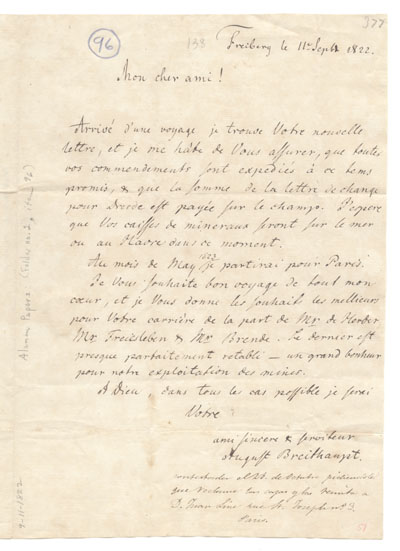 96
138
377
Freiberg le 11 Sept 1822.
Mon cher ami!
Arrivé d'une voyage je trouve Votre nouvelle
lettre, et je me hâte de Vous assurer, que toutes
vos commendements sont expediés à ce tems
promis, & que la somme de la lettre de change
pour Decde est payée sur le champ. J'espere
que Vos caisses de mineraux seront sur le mer
ou au Havre dans ce moment.
Au mois de May 1823 je partirai pour Paris.
Je Vous souhaite bon voyage de tout mon
cœur, et je Vous donne les souhaits les meilleurs
pour Votre carrière de la part de Mr. de Herder
Mr. Freiesleben & Mr. Brende. Le dernier est
presque parfaitement retabli — un grand bonheur
pour notre exploitation des mines.
A Dieu, dans tous les cas possible je serai
Votre
ami sincere & serviteur
August Breithaupt.
contestada el 22 de octubre pidiendole
que reclame las cajas y las remita a
D. Juan rue St. Joseph no 3.
Paris.
9-11-1822